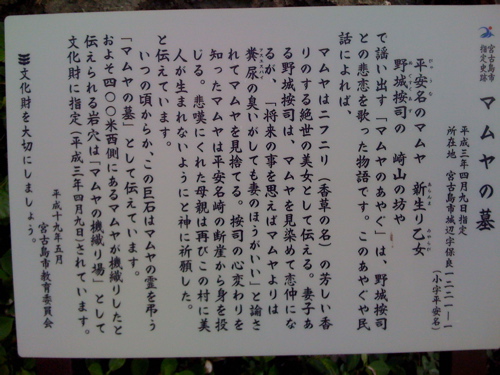 宮古島市
指定史跡
マムヤの墓
平成三年四月九日指定
所在地 宮古島市城辺字保良一二二一ー一
(小字平安名)
平安名のマムヤ 新生り乙女
野城按司の 崎山の坊や
で謡い出す「マムヤのあやぐ」は、野城按司
との悲恋を歌った物語です。このあやぐや民
話によれば、
マムヤはニフニリ(香草の名)の芳しい香
りのする絶世の美女として伝える。妻子あ
る野城按司は、マムヤを見染めて恋仲にな
るが、「将来の事を思えばマムヤよりは
糞尿の臭いがしても妻のほうがいい」と諭さ
れてマムヤを見捨てる。按司の心変わりを
知ったマムヤは平安名崎の断崖から身を投
じる。悲嘆にくれた母親は再びこの村に美
人が生まれないようにと神に祈願した。
と伝えています。
いつの頃からか、この巨石はマムヤの霊を弔う
「マムヤの墓」として伝えています。
およそ四〇〇米西側にあるマムヤが機織りしたと
伝えられる岩穴は「マムヤの機織り場」として
文化財に指定(平成三年四月九日)されています。
平成十九年五月
宮古島市教育委員会
文化財を大切にしましょう。